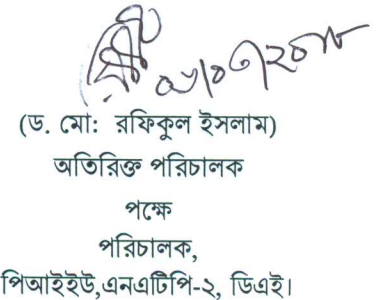 (ড. মো: রফিকুল ইসলাম)
অতিরিক্ত পরিচালক
পক্ষে
পরিচালক,
পিআইইউ,এনএটিপি-২, ডিএই।